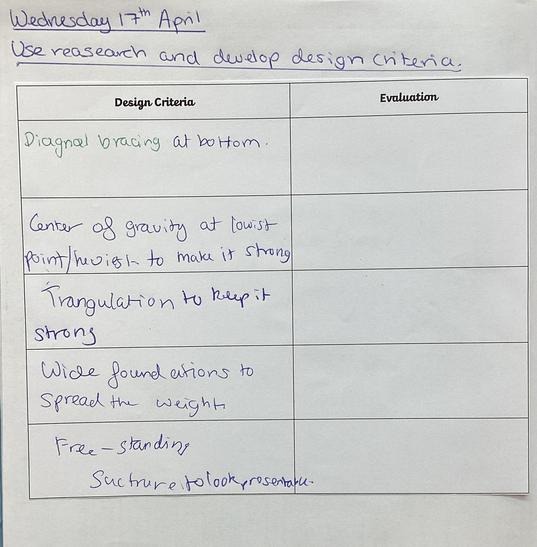 Wednesday 17th April
Use reasearch and develop design criteria.
Design Criteria
Evaluation
Diagnal bracing at bottom.
Center of gravity at lowist
point/hevigh to make it strong
Trangulation to keep it
strong
Wide foundations to
Spread the weight
Free-standing
Suctrure to look presentable.